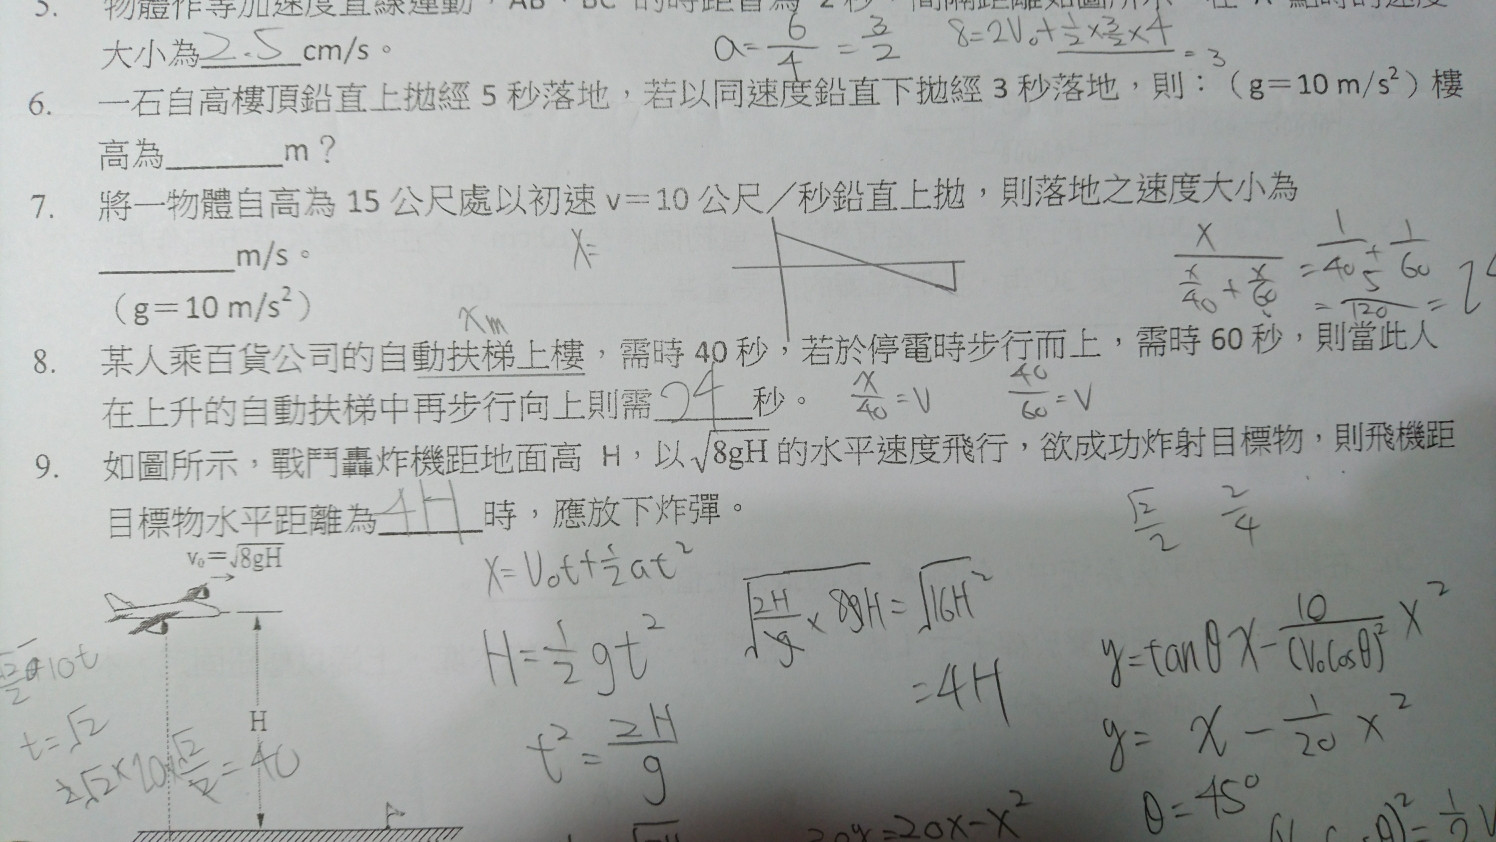 5. 物體作等加速度直線運動，AB、BC 的時距皆為 2 秒，間隔距離如圖所示，在 A 點時的速度
大小為2.5cm/s。
a=6/4=3/2
8=2V₀+1/2×3/2×4
=3
6. 一石自高樓頂鉛直上拋經 5 秒落地，若以同速度鉛直下拋經 3 秒落地，則：（g＝10 m/s²）樓
高為______m？
7. 將一物體自高為 15 公尺處以初速 v＝10 公尺／秒鉛直上拋，則落地之速度大小為
______m/s。
X=
（g＝10 m/s²）
X/(X/40+X/60)=1/40+1/60
=5/120=24
Xm
8. 某人乘百貨公司的自動扶梯上樓，需時 40 秒，若於停電時步行而上，需時 60 秒，則當此人
在上升的自動扶梯中再步行向上則需24秒。
X/40=V
40/60=V
9. 如圖所示，戰鬥轟炸機距地面高 H，以√8gH 的水平速度飛行，欲成功炸射目標物，則飛機距
目標物水平距離為4H時，應放下炸彈。
√2/2 2/4
v₀＝√8gH
X=V₀t+1/2at²
√(2H/g×8gH)=√16H²
=4H
H=1/2gt²
t²=2H/g
H
t=√2
y=tanθX-10/(V₀Cosθ)²X²
y=X-1/20X²
θ=45°
=20X-X²